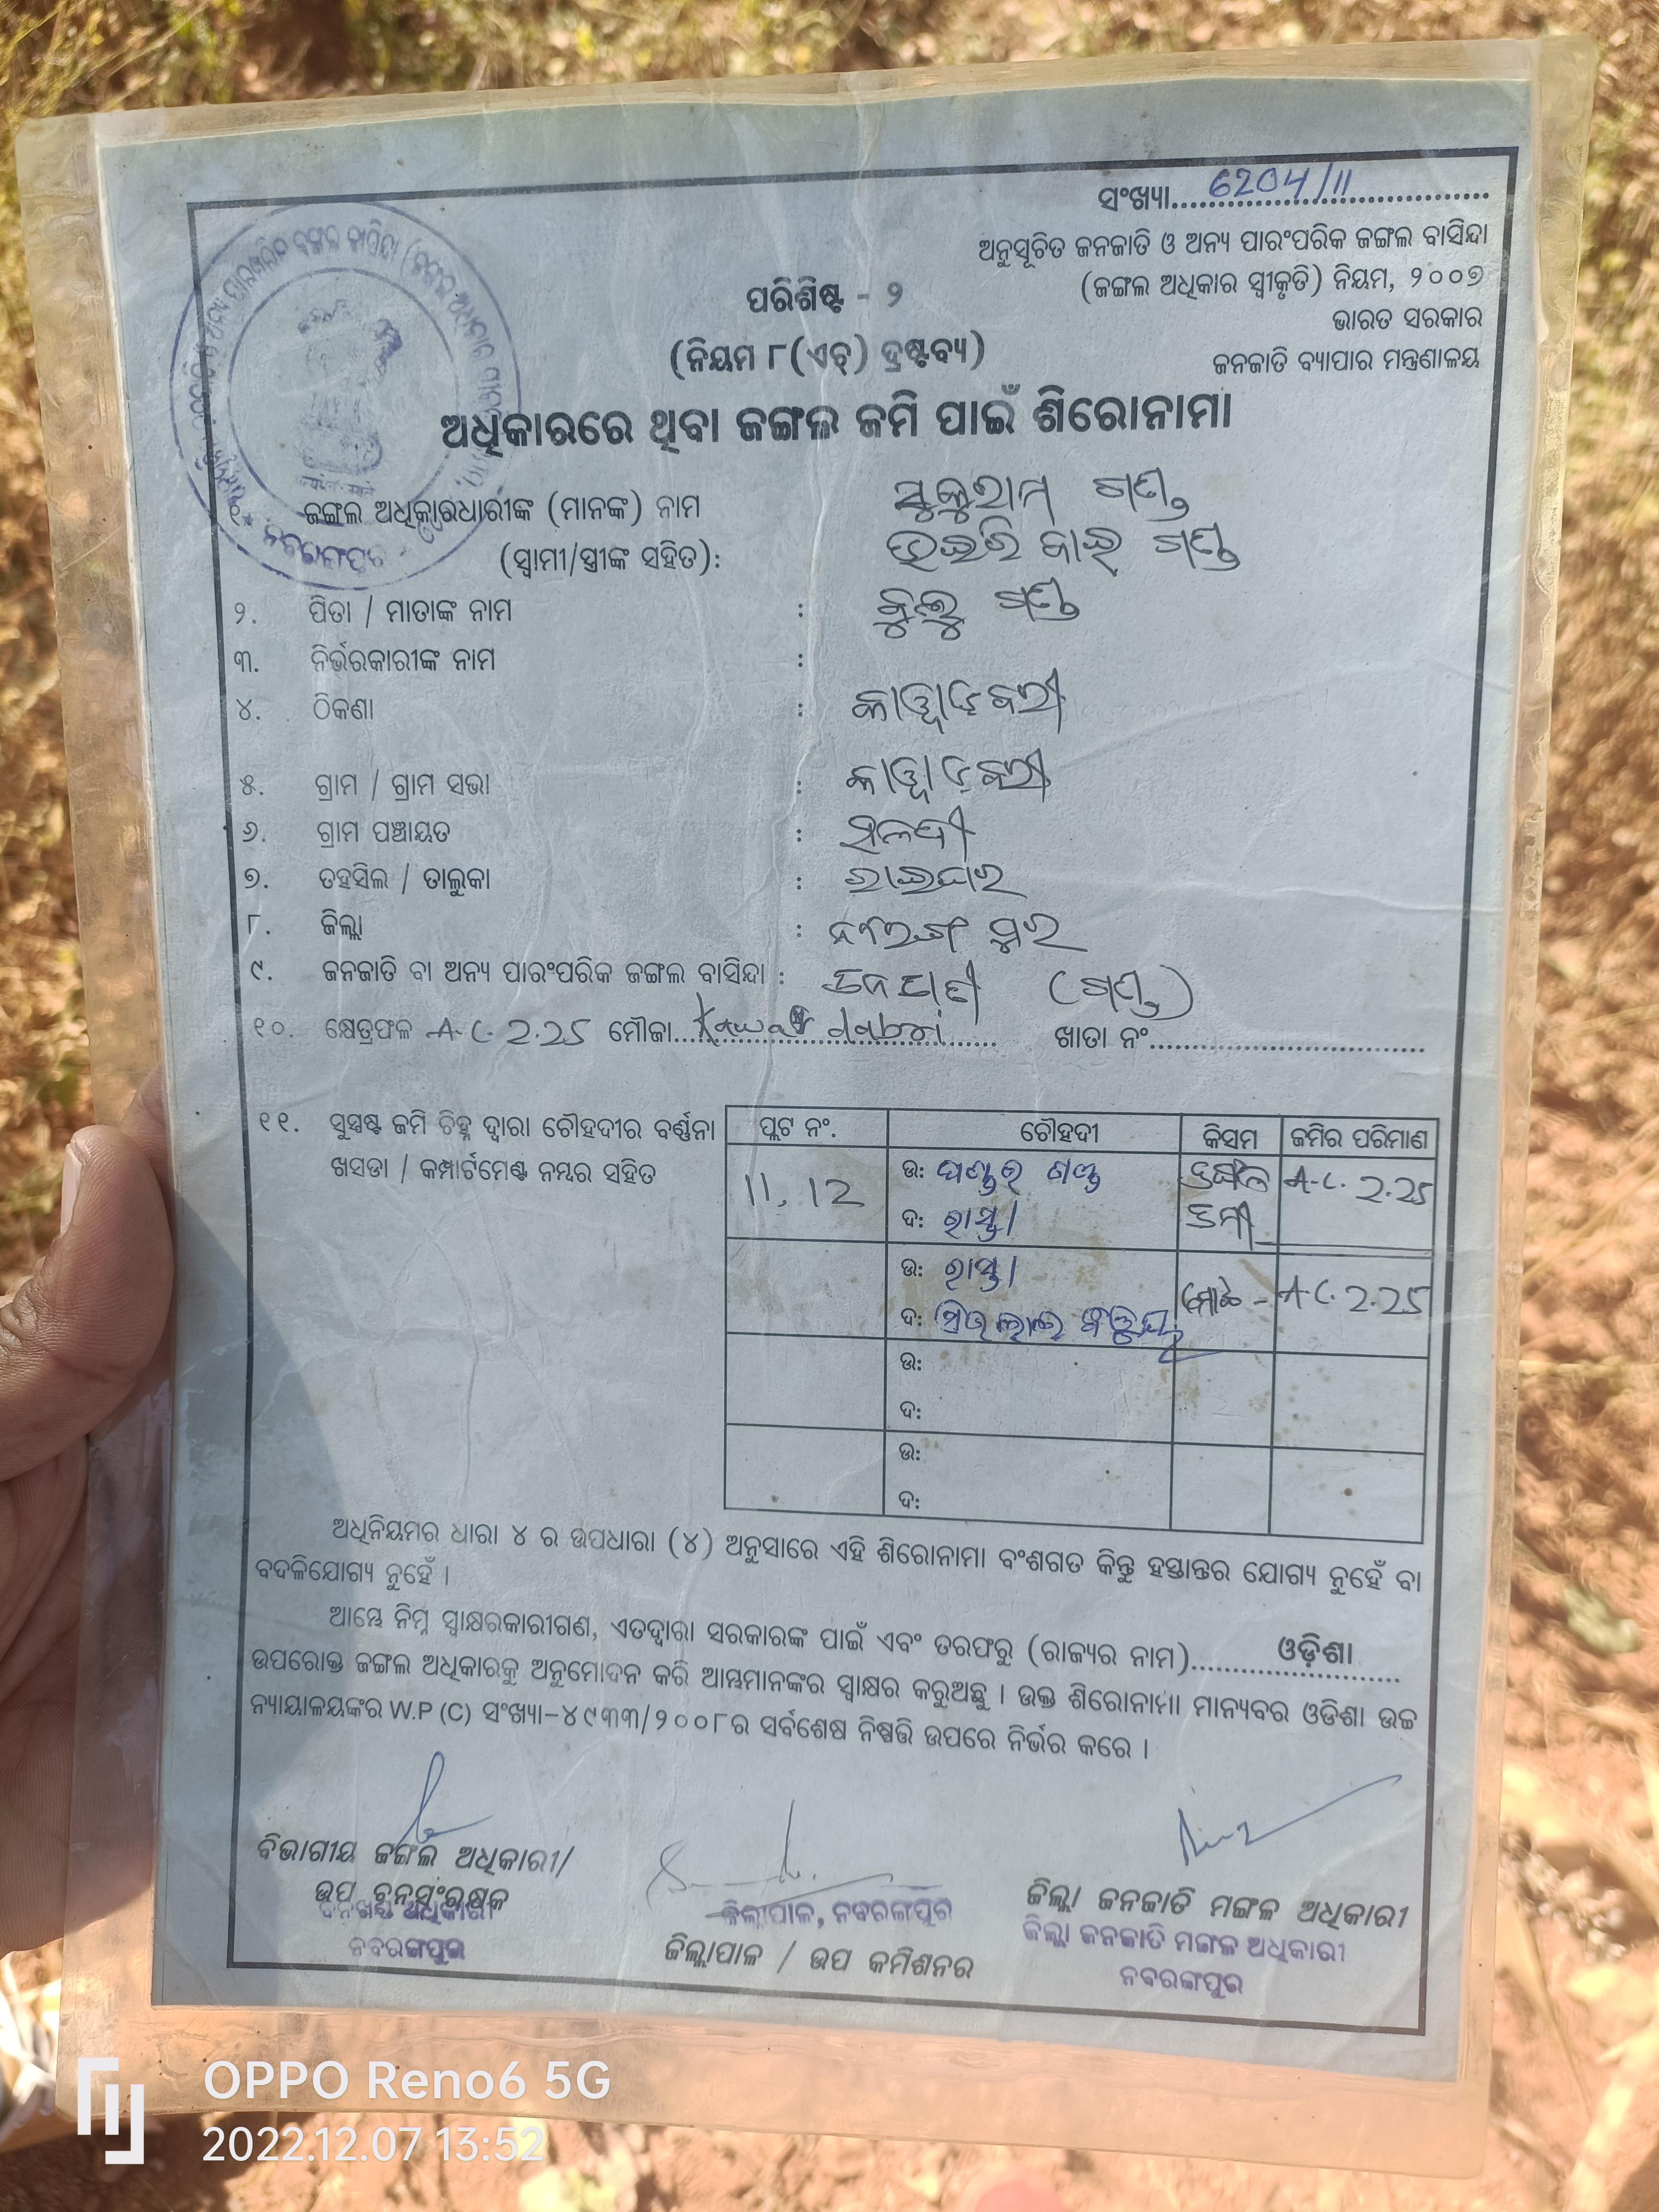 ସଂଖ୍ୟା.... 6204/11
ଅନୁସୂଚିତ ଜନଜାତି ଓ ଅନ୍ୟ ପାରଂପରିକ ଜଙ୍ଗଲ ବାସିନ୍ଦା
(ଜଙ୍ଗଲ ଅଧିକାର ସ୍ୱୀକୃତି) ନିୟମ, ୨୦୦୭
ଭାରତ ସରକାର
ଜନଜାତି ବ୍ୟାପାର ମନ୍ତ୍ରଣାଳୟ
ପରିଶିଷ୍ଟ - ୨
(ନିୟମ ୮(ଏଚ୍) ଦ୍ରଷ୍ଟବ୍ୟ)
ଅଧିକାରରେ ଥିବା ଜଙ୍ଗଲ ଜମି ପାଇଁ ଶିରୋନାମା
ଜଙ୍ଗଲ ଅଧିକାରଧାରୀଙ୍କ (ମାନଙ୍କ) ନାମ ସୁକୁରାମ ଗଣ୍ଡ
(ସ୍ୱାମୀ/ସ୍ତ୍ରୀଙ୍କ ସହିତ): ଗଣ୍ଡ
୨. ପିତା / ମାତାଙ୍କ ନାମ : ଗଣ୍ଡ
୩. ନିର୍ଭରକାରୀଙ୍କ ନାମ :
୪. ଠିକଣା :
୫. ଗ୍ରାମ / ଗ୍ରାମ ସଭା :
୬. ଗ୍ରାମ ପଞ୍ଚାୟତ :
୭. ତହସିଲ / ତାଲୁକା : ରାଇଘର
୮. ଜିଲ୍ଲା :
୯. ଜନଜାତି ବା ଅନ୍ୟ ପାରଂପରିକ ଜଙ୍ଗଲ ବାସିନ୍ଦା : (ଗଣ୍ଡ)
୧୦. କ୍ଷେତ୍ରଫଳ A.C. 2.25 ମୌଜା.... dabri ଖାତା ନଂ....
୧୧. ସୁସ୍ପଷ୍ଟ ଜମି ଚିହ୍ନ ଦ୍ୱାରା ଚୌହଦୀର ବର୍ଣ୍ଣନା
ଖସଡା / କମ୍ପାର୍ଟମେଣ୍ଟ ନମ୍ବର ସହିତ
ପ୍ଲଟ ନଂ. ଚୌହଦୀ କିସମ ଜମିର ପରିମାଣ
11, 12 ଉ: ଗଣ୍ଡ ଜଙ୍ଗଲ A.C. 2.25
ଦ: ରାସ୍ତା ଜମୀ
ଉ: ରାସ୍ତା ମୋଟ - A.C. 2.25
ଦ:
ଉ:
ଦ:
ଉ:
ଦ:
ଅଧିନିୟମର ଧାରା ୪ ର ଉପଧାରା (୪) ଅନୁସାରେ ଏହି ଶିରୋନାମା ବଂଶଗତ କିନ୍ତୁ ହସ୍ତାନ୍ତର ଯୋଗ୍ୟ ନୁହେଁ ବା
ବଦଳିଯୋଗ୍ୟ ନୁହେଁ ।
ଆମ୍ଭେ ନିମ୍ନ ସ୍ୱାକ୍ଷରକାରୀଗଣ, ଏତଦ୍ୱାରା ସରକାରଙ୍କ ପାଇଁ ଏବଂ ତରଫରୁ (ରାଜ୍ୟର ନାମ).... ଓଡ଼ିଶା
ଉପରୋକ୍ତ ଜଙ୍ଗଲ ଅଧିକାରକୁ ଅନୁମୋଦନ କରି ଆମ୍ଭମାନଙ୍କର ସ୍ୱାକ୍ଷର କରୁଅଛୁ । ଉକ୍ତ ଶିରୋନାମା ମାନ୍ୟବର ଓଡିଶା ଉଚ୍ଚ
ନ୍ୟାୟାଳୟଙ୍କର W.P (C) ସଂଖ୍ୟା-୪୯୩୩/୨୦୦୮ର ସର୍ବଶେଷ ନିଷ୍ପତ୍ତି ଉପରେ ନିର୍ଭର କରେ ।
ବିଭାଗୀୟ ଜଙ୍ଗଲ ଅଧିକାରୀ/
ଉପ ବନସଂରକ୍ଷକ
ବନଖଣ୍ଡ ଅଧିକାରୀ
ନବରଙ୍ଗପୁର
ଜିଲ୍ଲାପାଳ, ନବରଙ୍ଗପୁର
ଜିଲ୍ଲାପାଳ / ଉପ କମିଶନର
ଜିଲ୍ଲା ଜନଜାତି ମଙ୍ଗଳ ଅଧିକାରୀ
ଜିଲ୍ଲା ଜନଜାତି ମଙ୍ଗଳ ଅଧିକାରୀ
ନବରଙ୍ଗପୁର
OPPO Reno6 5G
2022.12.07 13:52